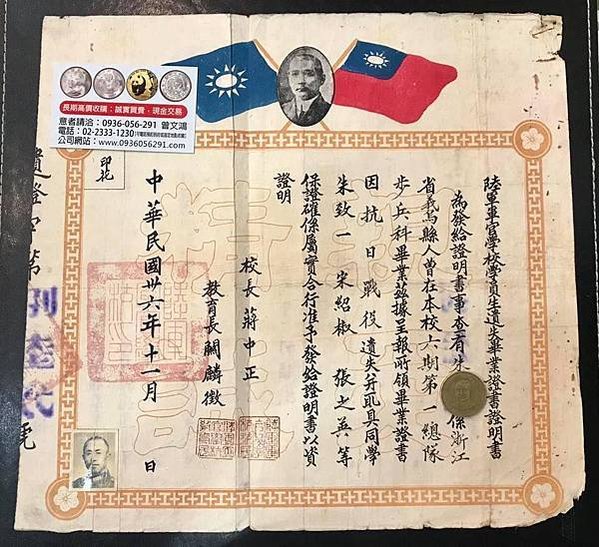 長期高價收購：誠實買賣、現金交易
意者請洽：0936-056-291 曾文鴻
電話：02-2333-1230
公司網站：www.0936056291.com
陸軍軍官學校學員生遺失畢業證書證明書
為發給證明書事查有朱 係浙江
省義烏縣人曾在本校六期第一總隊
步兵科畢業茲據呈報所領畢業證書
因抗日戰役遺失并取具同學
朱致一 宋紹椒 張之英等
保證確係屬實合行准予發給證明書以資
證明
校長蔣中正
教育長關麟徵
中華民國卅六年十一月 日
印花
遺證字第 號